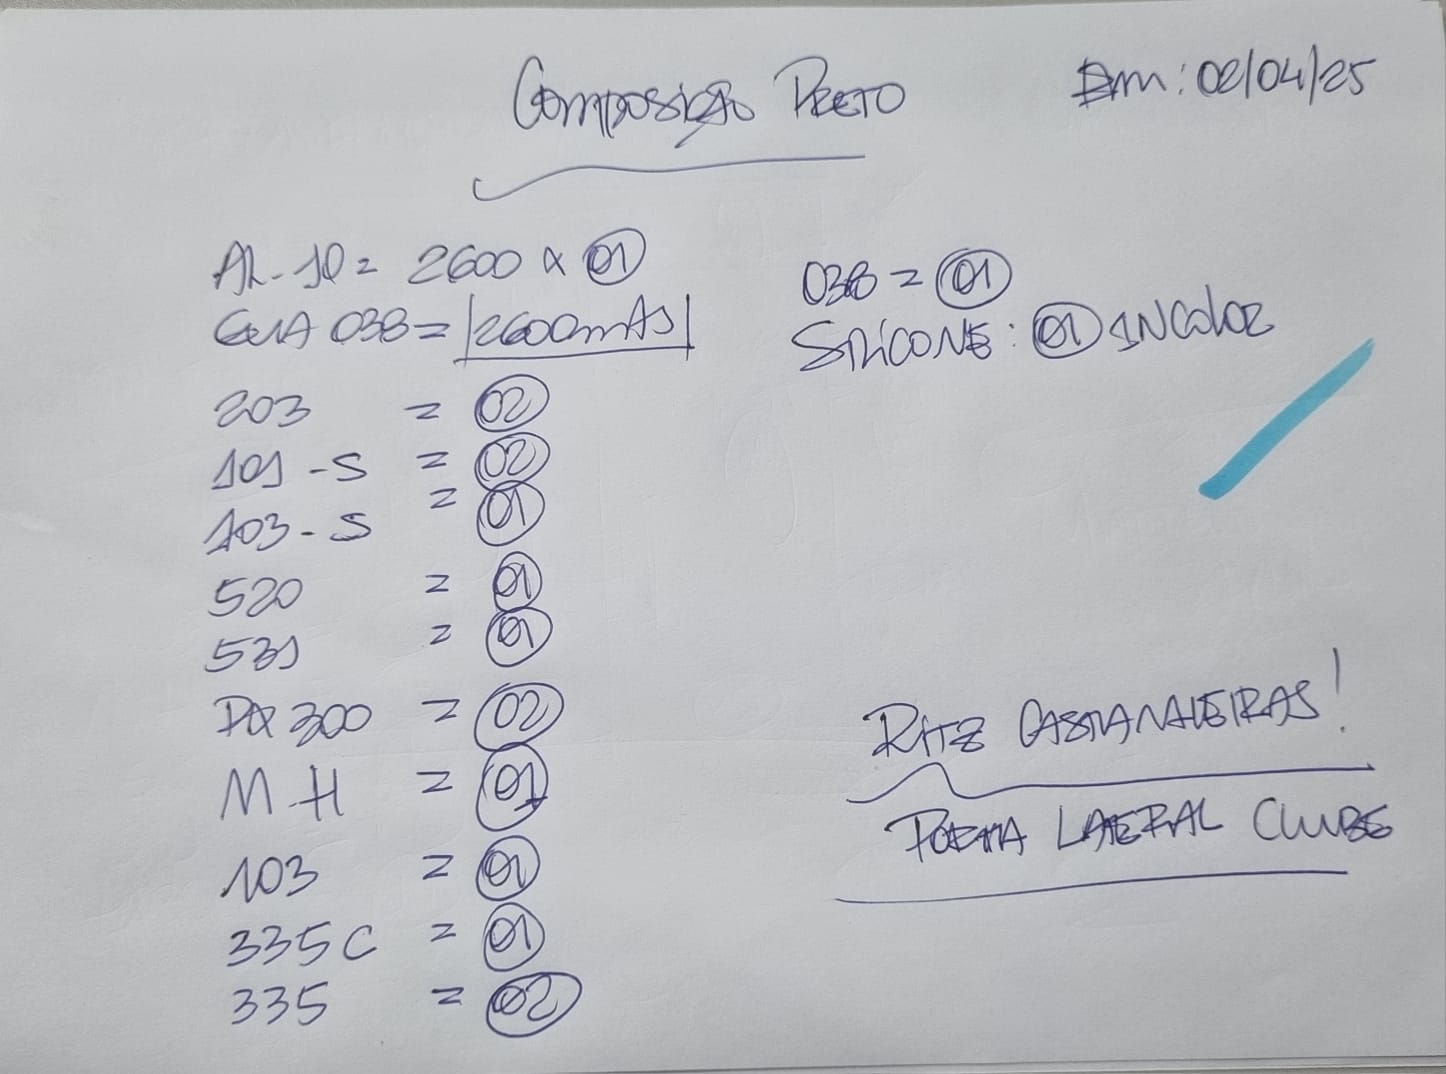 Composição PRETO
Em: 02/04/25
AL-10 = 2600 x 01
GUIA 038 = 2600mms
203 = 02
101-S = 02
103-S = 01
520 = 01
531 = 01
PX 300 = 02
MH = 01
103 = 01
335C = 01
335 = 02
038 = 01
SILICONE: 01 INColoR
RITZ CASTANHEIRAS!
PORTA LATERAL CLUBE